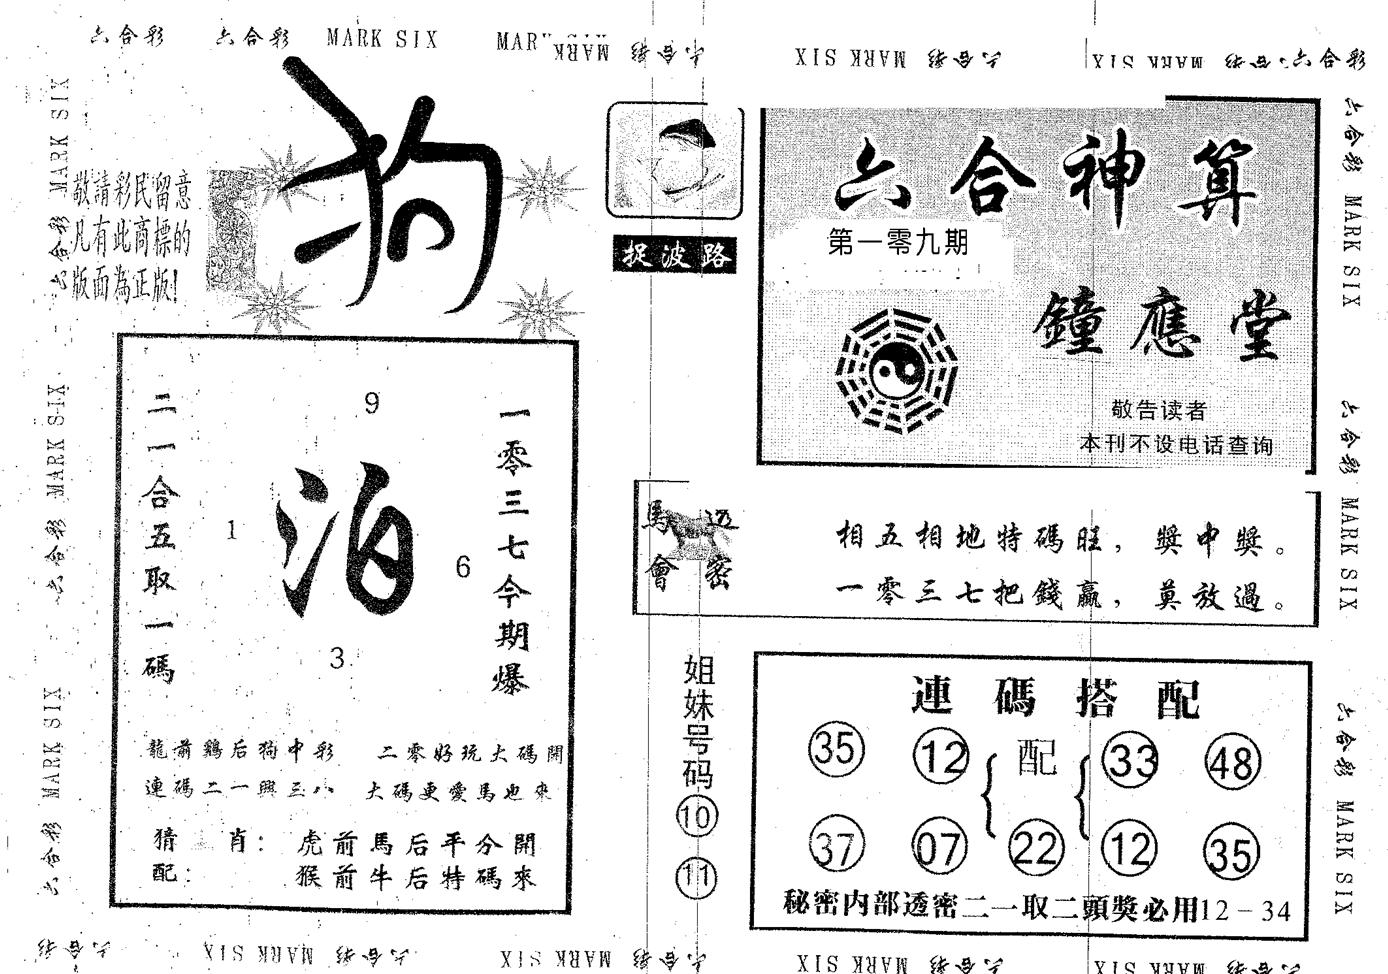 六合彩 六合彩 MARK SIX MAR
MARK 六合彩
六合彩 MARK SIX
六合彩 MARK SIX
六合彩
狗
敬請彩民留意
凡有此商標的
版面為正版!
捉波路
六合神算
第一零九期
鐘應堂
敬告读者
本刊不设电话查询
二一合五取一碼
9
1
泊
6
3
一零三七今期爆
龍前鷄后狗中彩 二零好玩大碼開
連碼二一興三八 大碼更愛馬也來
猜肖: 虎前馬后平分開
配: 猴前牛后特碼來
馬會
透密
相五相地特碼旺,獎中獎。
一零三七把錢贏,莫放過。
姐妹号码
10
11
連碼搭配
35 12 配 33 48
37 07 22 12 35
秘密内部透密二一取二頭獎必用12-34
六合彩 MARK SIX
六合彩 MARK SIX
六合彩 MARK SIX
六合彩 MARK SIX
六合彩 MARK SIX
六合彩 MARK SIX
六合彩
六合彩
六合彩 MARK SIX
六合彩 MARK SIX
六合彩 MARK SIX
六合彩 MARK SIX